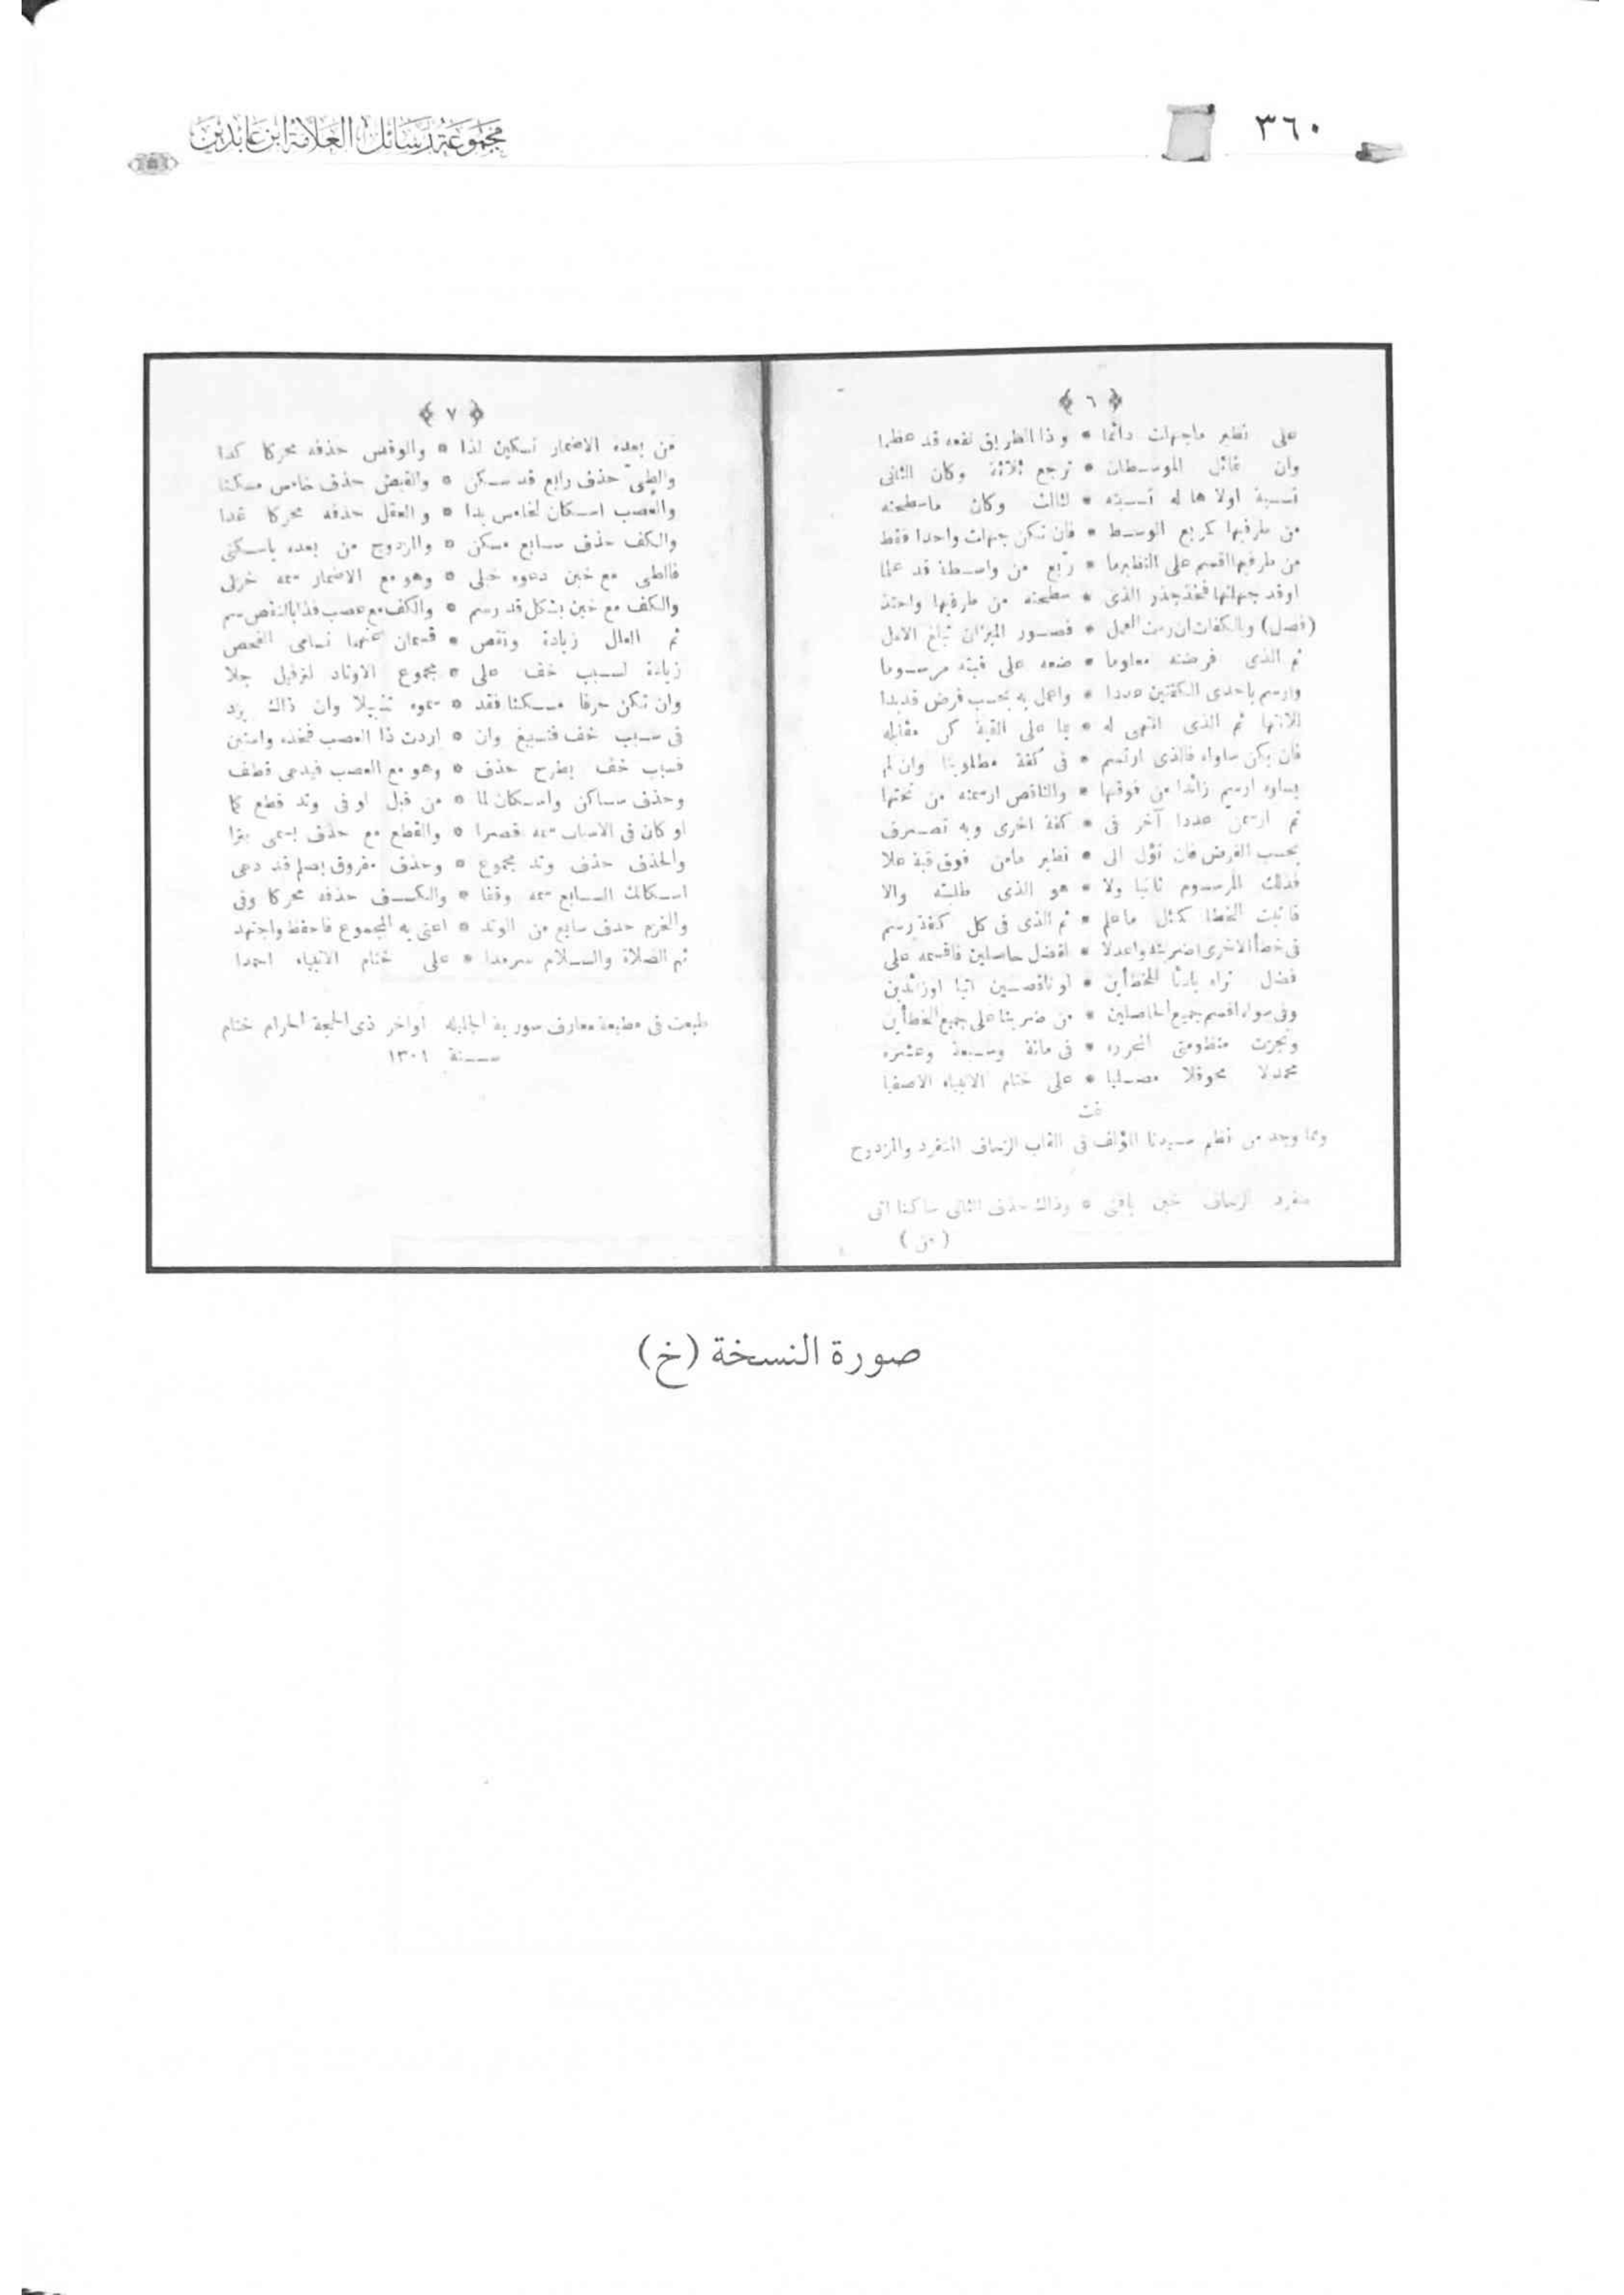 ٣٦٠
مجموعة رسائل العلامة ابن عابدين
﴿ ٦ ﴾
على نظير ماجهلت دائما * وذا الطريق نفعه قد عظما
وان تماثل الموسطان * ترجع ثلاثة وكان الثانى
نسبة اولاها له نسبته * لثالث وكان ماسطحته
من طرفيها كمربع الوسط * فان تكن جهلت واحدا فقط
من طرفيها اقسم على النظير ما * ربع من واسطة قد علما
اوقد جهلتها فخذ جذر الذى * سطحته من طرفيها واحتذ
(فصل) وبالكفات ان رمت العمل * فصور الميزان تبلغ الامل
ثم الذى فرضته معلوما * ضعه على قبته مرسوما
وارسم باحدى الكفتين عددا * واعمل به بحسب فرض قد بدا
للانتها ثم الذى انتهى له * بما على القبة كن مقابله
فان يكن ساواه فالذى ارتسم * فى كفة مطلوبنا وان لم
يساوه ارسم زائدا من فوقها * والناقص ارسمنه من تحتها
ثم ارسمن عددا آخر فى * كفة اخرى وبه تصرف
بحسب الفرض فان تؤل الى * نظير مامن فوق قبة علا
فذلك المرسوم ثانيا ولا * هو الذى طلبته والا
فاثبت الخطا كمثل ماعلم * ثم الذى فى كل كفة رسم
فى خطأ الاخرى اضربنه واعدلا * لفضل حاصلين فاقسمه على
فضل تراه بادئا للخطأين * لو ناقصين اتيا اوزائدين
وفى سواء اقسم جميع الحاصلين * من ضربنا على جميع الخطأين
ونجزت منظومتى المحرره * فى مائة وسبعة وعشره
محمدلا محوقلا مصليا * على ختام الانبياء الاصفيا
تمت
ومما وجد من نظم سيدنا المؤلف فى القاب الزحاف المنفرد والمزدوج
منفرد الزحاف خبن يافتى * وذاك حذف الثانى ساكنا اتى
( من )
﴿ ٧ ﴾
من بعده الاضمار تسكين لذا * والوقص حذفه محركا كذا
والطى حذف رابع قد سكن * والقبض حذف خامس مسكنا
والعصب اسكان لخامس بدا * والعقل حذفه محركا غدا
والكف حذف سابع مسكن * والمزدوج من بعده ياسكنى
فالطى مع خبن دعوه خبلى * وهو مع الاضمار سمه خزلى
والكف مع خبن بشكل قد رسم * والكف مع عصب فذا بالنقص سم
ثم العلل زيادة ونقص * قسمان عنهما تسامى الفحص
زيادة لسبب خف على * مجموع الاوتاد لترفيل جلا
وان تكن حرفا مسكنا فقد * سموه تذييلا وان ذاك يزد
فى سبب خف فتسبيغ وان * اردت ذا العصب فخذه وامتين
فسبب خف بطرح حذف * وهو مع العصب فيدعى قطف
وحذف ساكن واسكان لما * من قبل او فى وتد قطع كما
او كان فى الاسباب سمه قصرا * والقطع مع حذف يسمى بترا
والحذف حذف وتد مجموع * وحذف مفروق بصلم قد دعى
اسكانك السابع سمه وقفا * والكسف حذفه محركا وفى
والخرم حذف سابع من الوتد * اعنى به المجموع فاحفظ واجتهد
ثم الصلاة والسلام سرمدا * على ختام الانبياء احمدا
طبعت فى مطبعة معارف سورية الجليله اواخر ذى الحجة الحرام ختام
سنة ١٣٠١
صورة النسخة (خ)